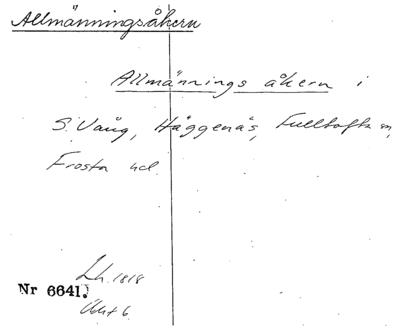 Allmänningsåkern
Allmännings åkern i
S. Vång, Häggenäs, Fulltofta sn,
Frosta hd.
Lh. 1818
Nr 6641.
Akt 6.